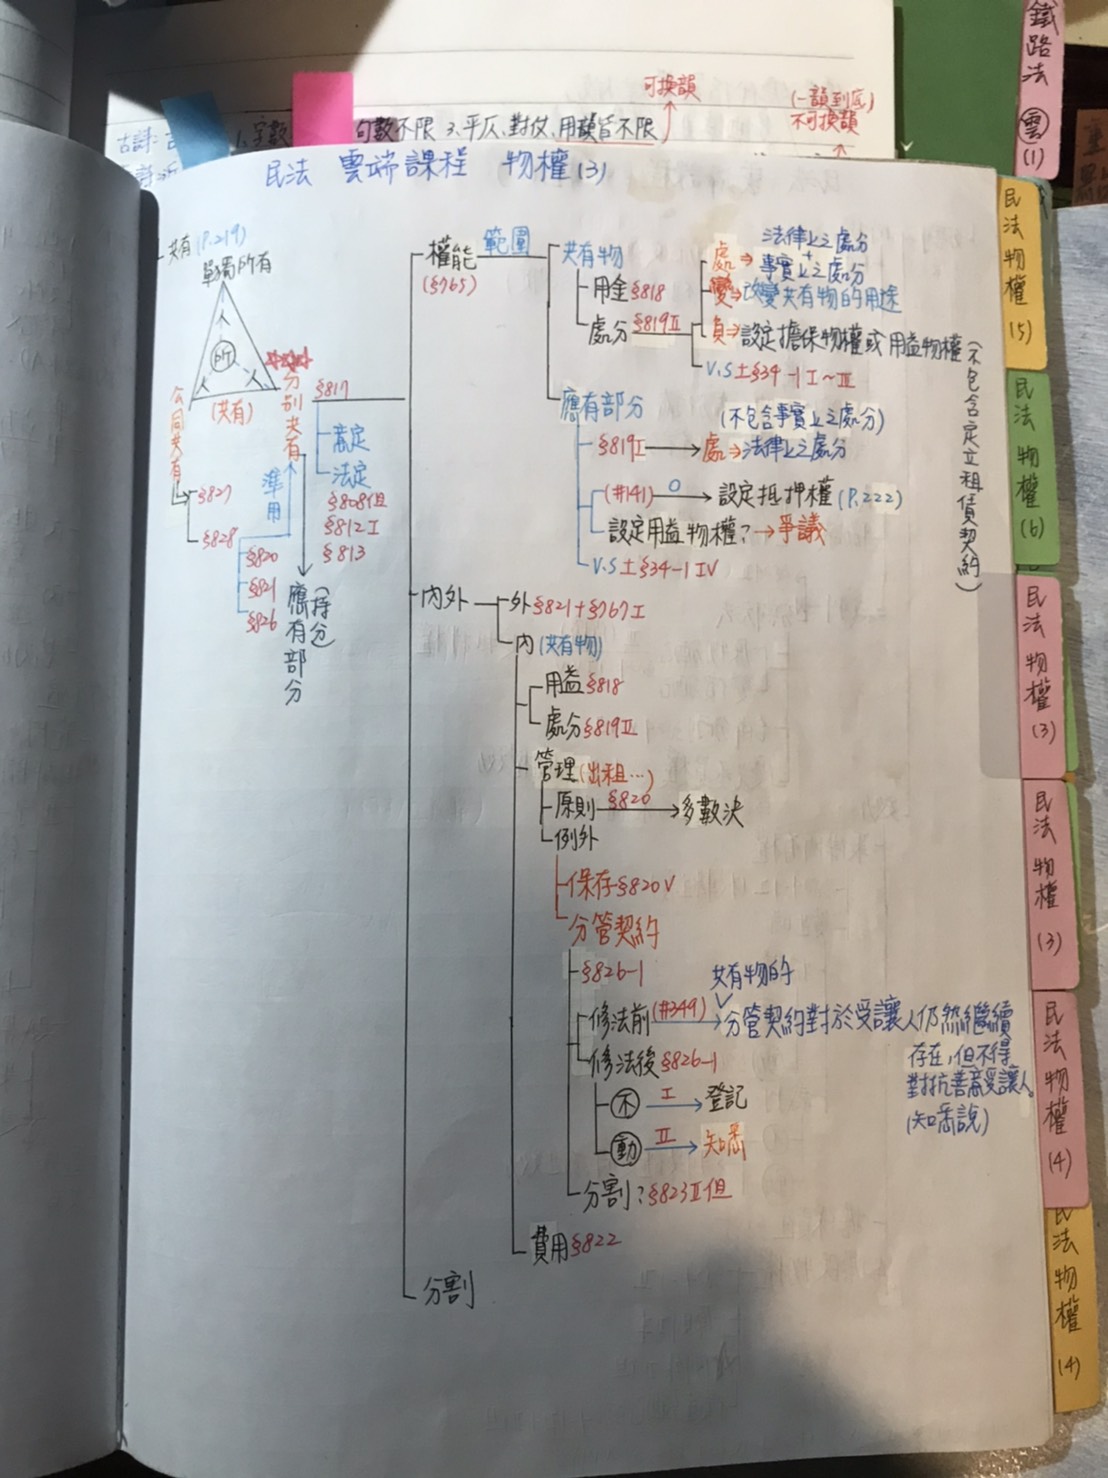 可換韻
(一韻到底)
不可換韻
古詩:
1.字數
句數不限 3、平仄、對仗、用韻皆不限
民法 雲端課程 物權(3)
共有(P.219)
單獨所有
人
所
人 人
(共有)
公同共有
§827
§828
分別共有
準用
§820
§821
§826
應有部分
(持分)
§817
意定
法定
§808但
§812I
§813
權能 範圍
(§765)
共有物
用益§818
處分 §819II
處→ 法律上之處分
+
事實上之處分
變→改變共有物的用途
負→設定擔保物權或用益物權
(不包含定立租賃契約)
V.S土§34-1 I~III
應有部分
(不包含事實上之處分)
§819I 處→法律上之處分
(#141) O 設定抵押權(P.222)
設定用益物權?→爭議
V.S土§34-1 IV
內外
外§821+§767I
內(共有物)
用益§818
處分§819II
管理(出租…)
原則 §820 多數決
例外
保存§820V
分管契約
§826-1
共有物的
修法前(#349) 分管契約對於受讓人仍然繼續
存在,但不得
對抗善意受讓人。
(知悉說)
修法後§826-1
不 I 登記
動 II 知悉
分割?§823II但
費用§822
分割
鐵路法 雲 (1)
民法物權(5)
民法物權(6)
民法物權(3)
民法物權(3)
民法物權(4)
民法物權(4)